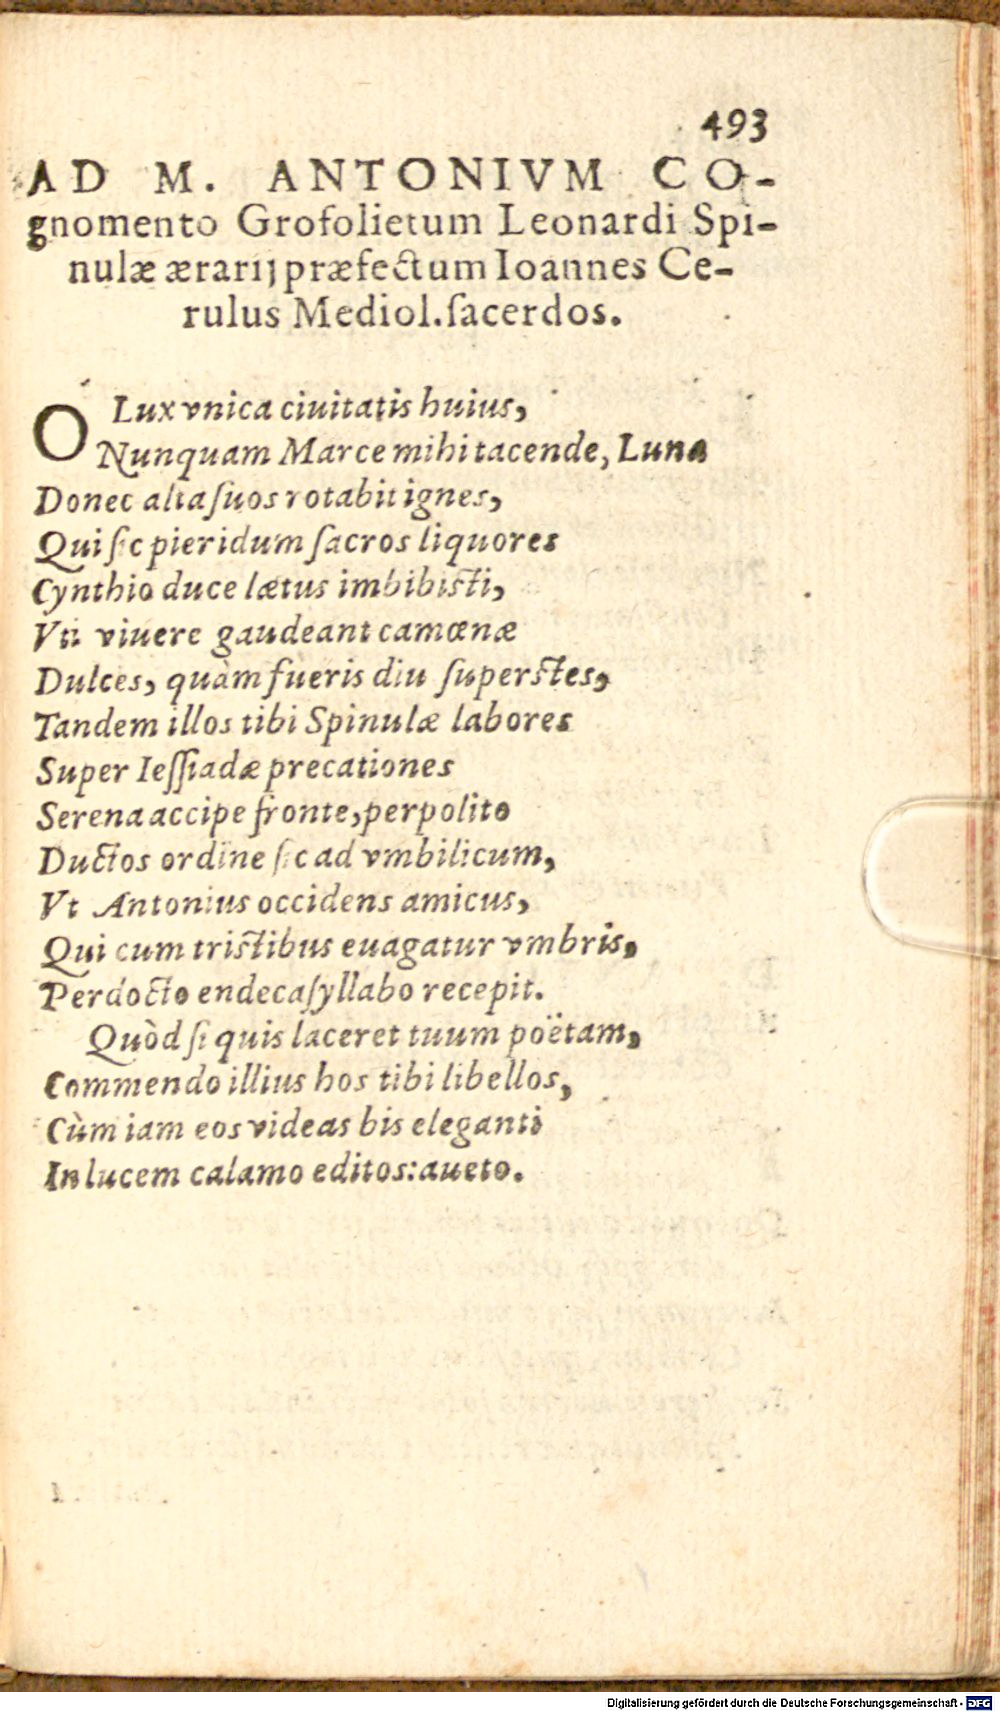 493
AD M. ANTONIVM CO-
gnomento Grofolietum Leonardi Spi-
nulæ ærarij præfectum Ioannes Ce-
rulus Mediol. ſacerdos.
O Lux vnica ciuitatis huius,
Nunquam Marce mihi tacende, Luna
Donec alta ſuos rotabit ignes,
Qui ſic pieridum ſacros liquores
Cynthio duce lætus imbibiſti,
Vti viuere gaudeant camœnæ
Dulces, quàm fueris diu ſuperſtes,
Tandem illos tibi Spinulæ labores
Super Ieſſiadæ precationes
Serena accipe fronte, perpolito
Ductos ordine ſic ad vmbilicum,
Vt Antonius occidens amicus,
Qui cum triſtibus euagatur vmbris,
Perdocto endecaſyllabo recepit.
Quòd ſi quis laceret tuum poëtam,
Commendo illius hos tibi libellos,
Cùm iam eos videas bis eleganti
In lucem calamo editos: aueto.
Digitalisierung gefördert durch die Deutsche Forschungsgemeinschaft - DFG